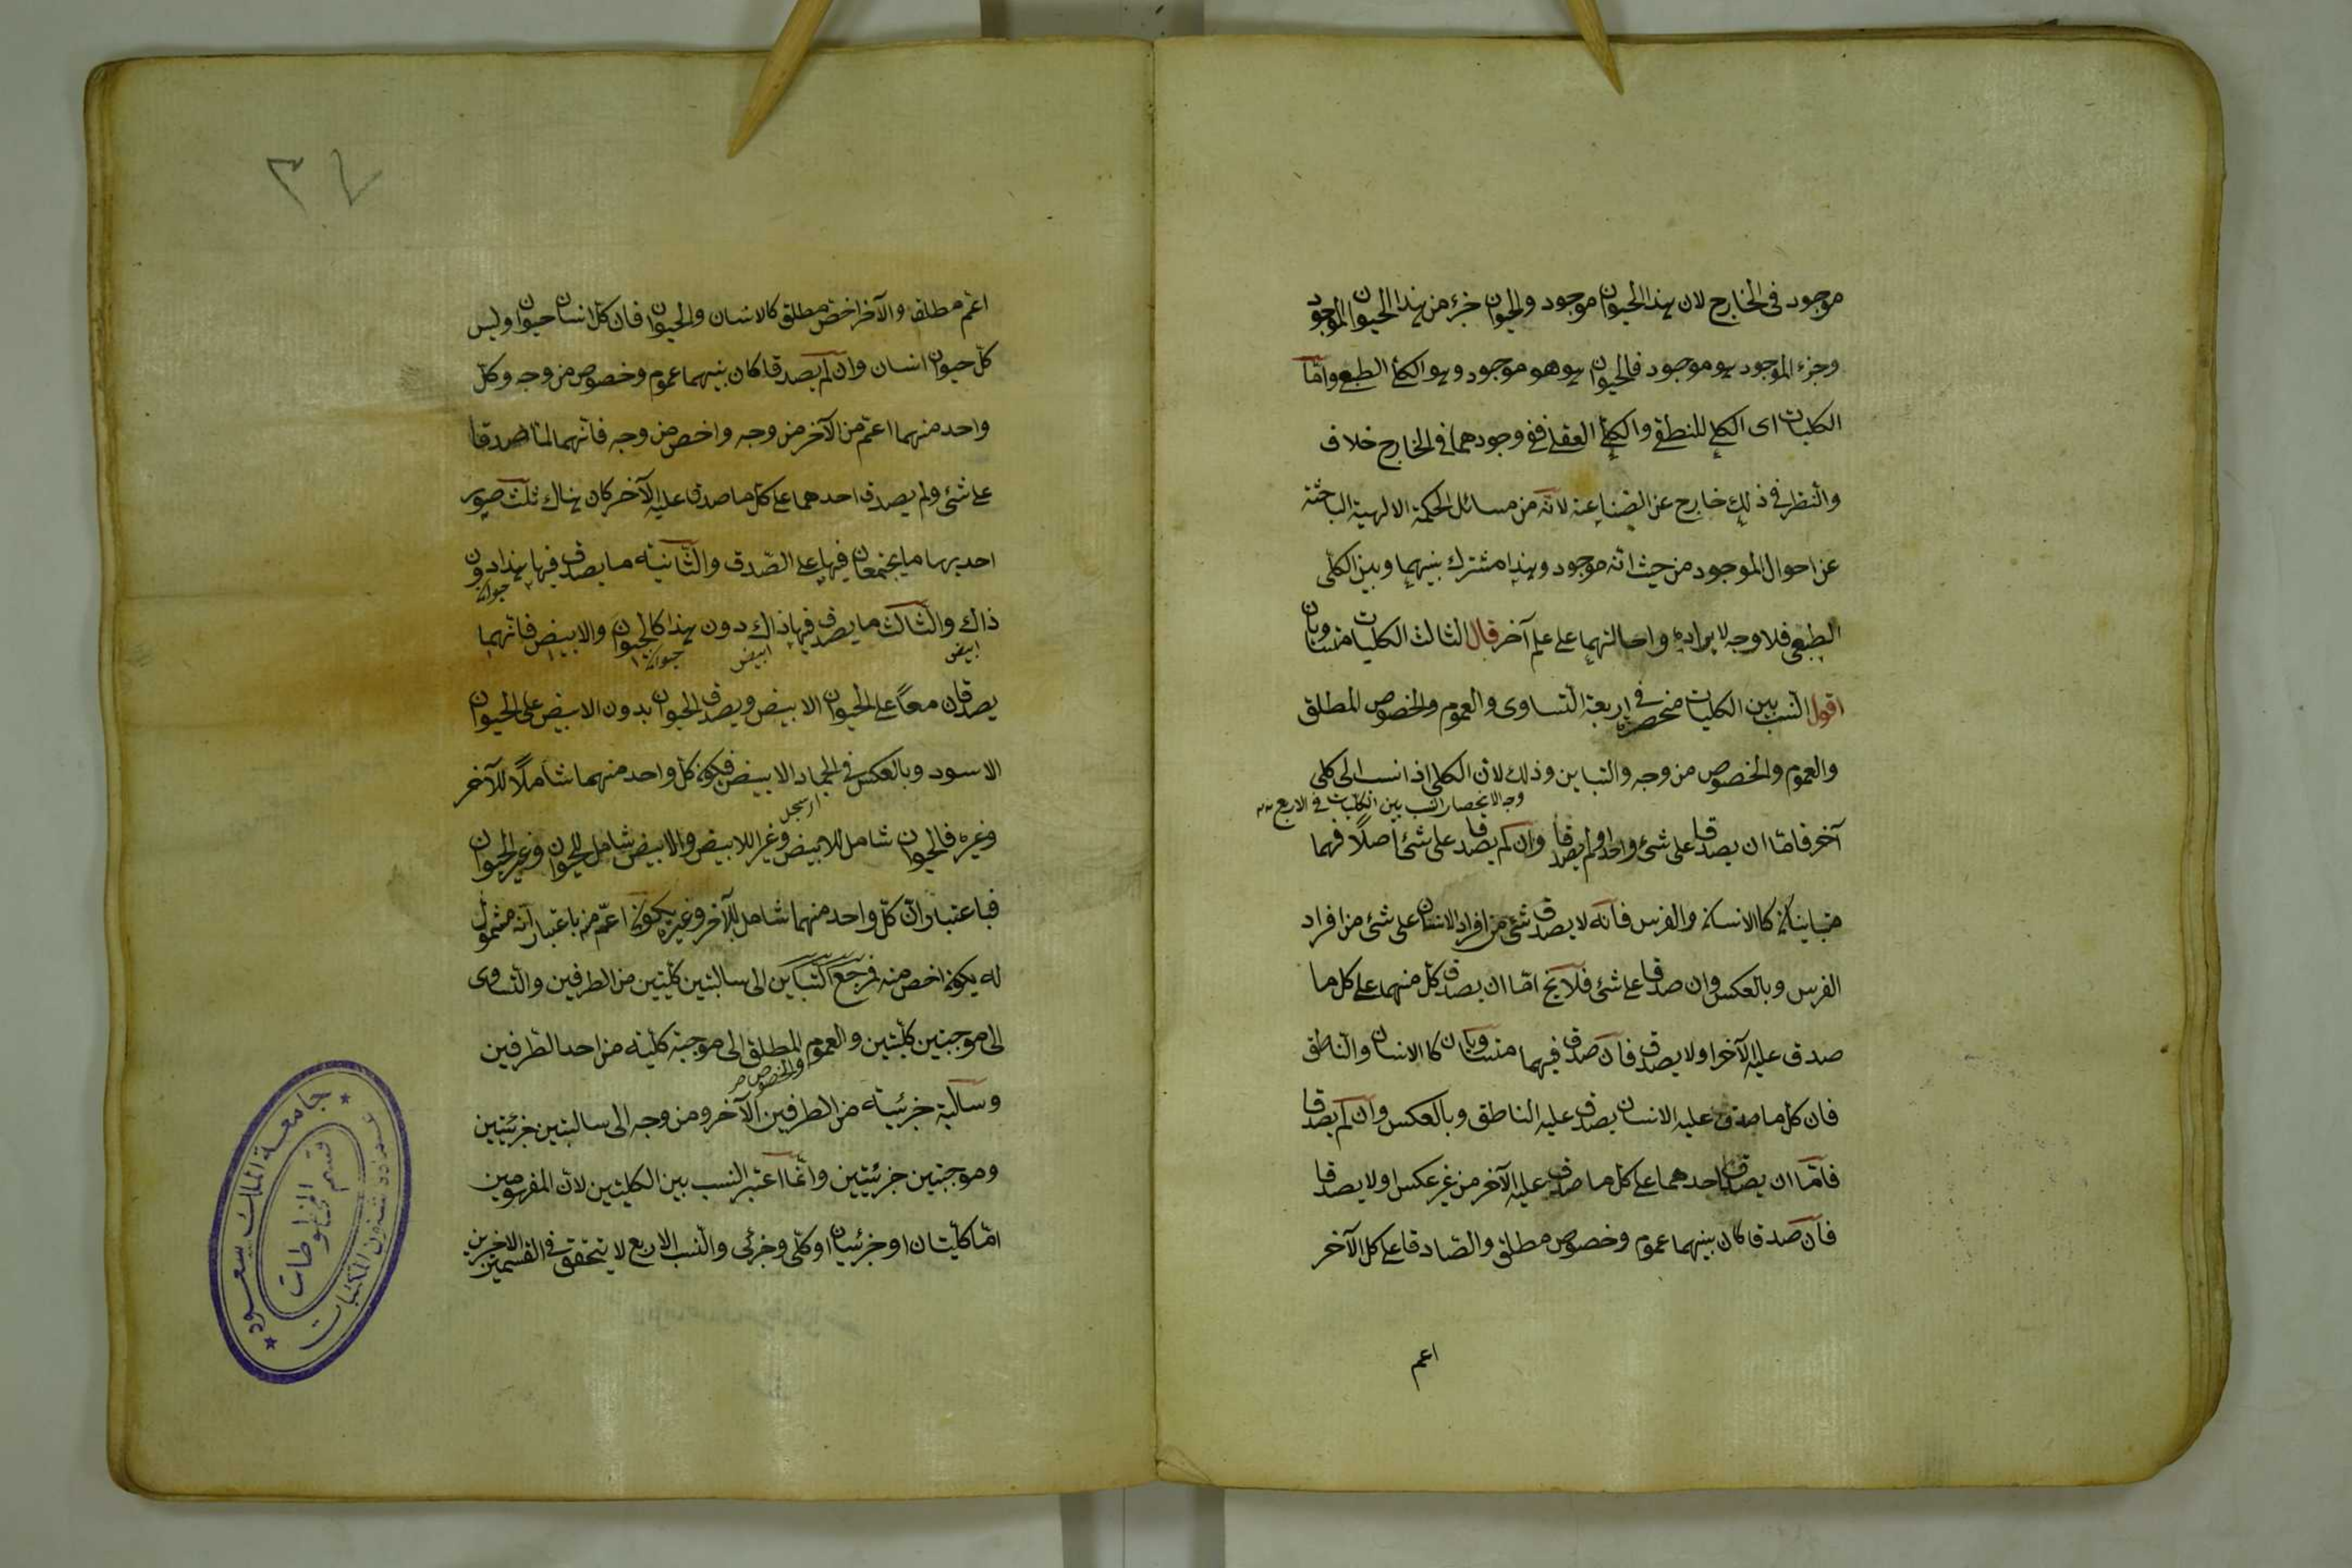 موجود فى الخارج لان هذا الحيوان موجود والحيوان جزء من هذا الحيوان الموجود
وجزء الموجود هو موجود فالحيوان هو هو موجود وهو الكلى الطبيعى واما
الكليات اى الكلى المنطقى والكلى العقلى ففى وجودهما فى الخارج خلاف
والنظر فى ذلك خارج عن الصناعة لانه من مسائل الحكمة الالهية الباحثة
عن احوال الموجود من حيث انه موجود وهذا مشترك بينهما وبين الكلى
الطبيعى فلا وجه لايراده واحالتهما على علم آخر قال الثالث الكليات متساويان
اقول النسب بين الكليات منحصرة فى اربعة التساوى والعموم والخصوص المطلق
والعموم والخصوص من وجه والتباين وذلك لان الكلى اذا نسب الى كلى
وجه الانحصار النسب بين الكليات فى الاربع
آخر فاما ان يصدقا على شئ واحد او لم يصدقا وان لم يصدقا على شئ اصلًا فهما
متباينان كالانسان والفرس فانه لا يصدق شئ من افراد الانسان على شئ من افراد
الفرس وبالعكس وان صدقا على شئ فلا يخ اما ان يصدق كل منهما على كل ما
صدق عليه الآخر او لا يصدق فان صدق فهما متساويان كالانسان والناطق
فان كل ما صدق عليه الانسان يصدق عليه الناطق وبالعكس وان لم يصدقا
فاما ان يصدق احدهما على كل ما صدق عليه الآخر من غير عكس او لا يصدقا
فان صدقا كان بينهما عموم وخصوص مطلق والصادق على كل الآخر
اعم
٣٤
اعم مطلقا والآخر اخص مطلق كالانسان والحيوان فان كل انسان حيوان وليس
كل حيوان انسان وان لم يصدقا كان بينهما عموم وخصوص من وجه وكل
واحد منهما اعم من الآخر من وجه واخص من وجه فانهما لما صدقا
على شئ ولم يصدق احدهما على كل ما صدق عليه الآخر كان هناك ثلث صور
احديها ما يجتمعان فيها على الصدق والثانية ما يصدق فيها هذا دون
ذاك والثالث ما يصدق فيها ذاك دون هذا كالحيوان والابيض فانهما
ابيض ابيض
يصدقان معًا على الحيوان الابيض ويصدق الحيوان بدون الابيض على الحيوان
الاسود وبالعكس فى الجماد الابيض فيكون كل واحد منهما شاملًا للآخر
وغيره فالحيوان شامل للابيض وغير الابيض والابيض شامل للحيوان وغير الحيوان
فباعتبار ان كل واحد منهما شامل للآخر وغيره يكون اعم منه باعتبار انه مشمول
له يكون اخص منه فمرجع التباين الى سالبتين كليتين من الطرفين والتساوى
الى موجبتين كليتين والعموم المطلق الى موجبة كلية من احد الطرفين
والخصوص
وسالبة جزئية من الطرفين الآخر ومن وجه الى سالبتين جزئيتين
وموجبتين جزئيتين وانما اعتبر النسب بين الكليتين لان المفهومين
اما كليتان او جزئيان او كلى وجزئى والنسب الاربع لا يتحقق فى القسمين الاخرين
جامعة الملك سعود
قسم المخطوطات
عمادة شئون المكتبات